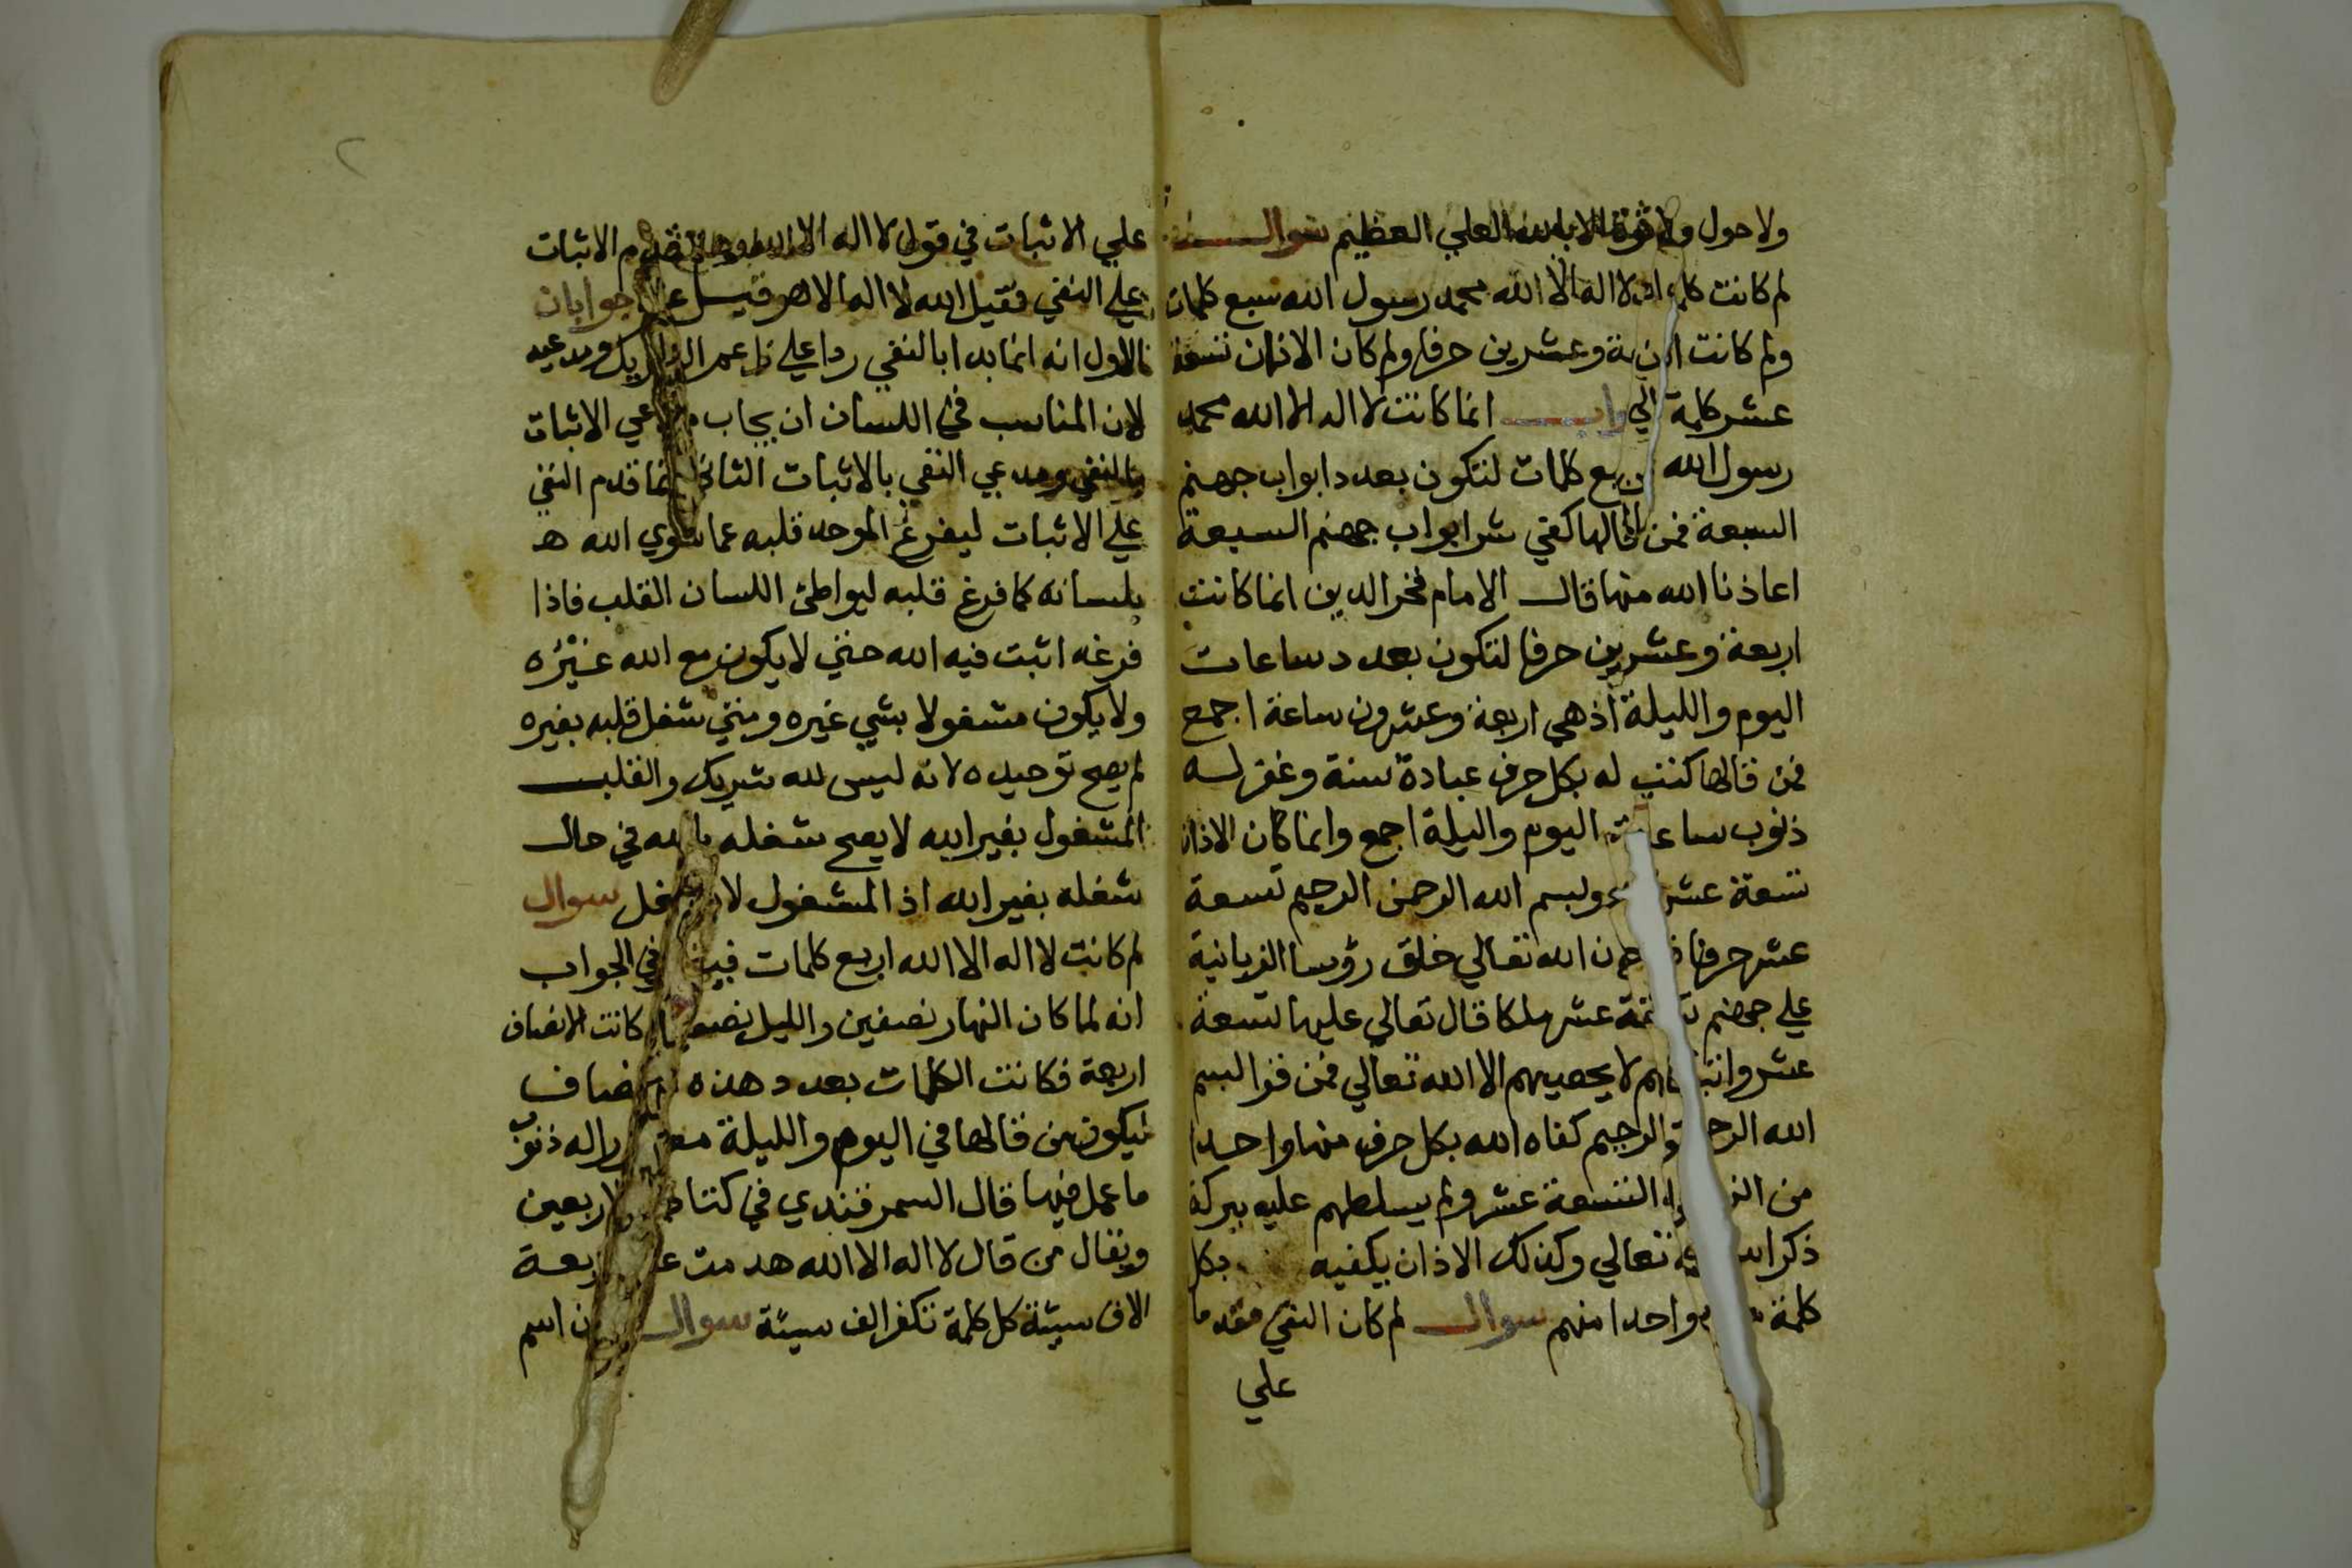 ولا حول ولا قوة الا بالله العلي العظيم سوال
لم كانت لا اله الا الله محمد رسول الله سبع كلمات
ولم كانت وعشرين حرفا ولم كان الاذان تسعة
عشر كلمة انما كانت لا اله الا الله محمد
رسول الله كلمات لتكون بعدد ابواب جهنم
السبعة فمن قالها كفي شر ابواب جهنم السبعة
اعاذنا الله منها قال الامام فخر الدين انما كانت
اربعة وعشرين حرفا لتكون بعدد ساعات
اليوم والليلة اذ هي اربعة وعشرون ساعة اجمع
فمن قالها كتب له بكل حرف عبادة سنة وغفر له
ذنوب ساعات اليوم والليلة اجمع وانما كان الاذان
تسعة عشر وبسم الله الرحمن الرحيم تسعة
عشر حرفا ان الله تعالي خلق رؤسا الزبانية
علي جهنم عشر ملكا قال تعالي عليها تسعة
عشر لا يحصيهم الا الله تعالي فمن قرا بسم
الله الرحمن الرحيم كفاه الله بكل حرف منها واحدا
من التسعة عشر ولم يسلطهم عليه ببركة
ذكر الله تعالي وكذلك الاذان يكفيه بكل
كلمة واحدا منهم سوال لم كان النفي مقدما
علي
علي الاثبات في قول لا اله الا الله الاثبات
علي النفي فقيل الله لا اله الا هو جوابان
فالاول انه انما بدا بالنفي ردا علي
لان المناسب في اللسان ان يجاب الاثبات
بالنفي ومدعي النفي بالاثبات الثاني انما قدم النفي
علي الاثبات ليفرغ الموحد قلبه عما سوي الله
بلسانه كما فرغ قلبه ليواطئ اللسان القلب فاذا
فرغه اثبت فيه الله حتي لا يكون مع الله غيره
ولا يكون مشغولا بشي غيره ومتي شغل قلبه بغيره
لم يصح توحيده لانه ليس لله شريك والقلب
المشغول بغير الله لا يصح شغله بالله في حال
شغله بغير الله اذ المشغول لا سوال
لم كانت لا اله الا الله اربع كلمات في الجواب
انه لما كان النهار نصفين والليل كانت الانصاف
اربعة فكانت الكلمات بعدد هذه الانصاف
ليكون من قالها في اليوم والليلة له ذنوب
ما عمل فيها قال السمرقندي في كتاب الاربعين
ويقال من قال لا اله الا الله هدمت اربعة
الاف سيئة كل كلمة تكفر الف سيئة سوال اسم